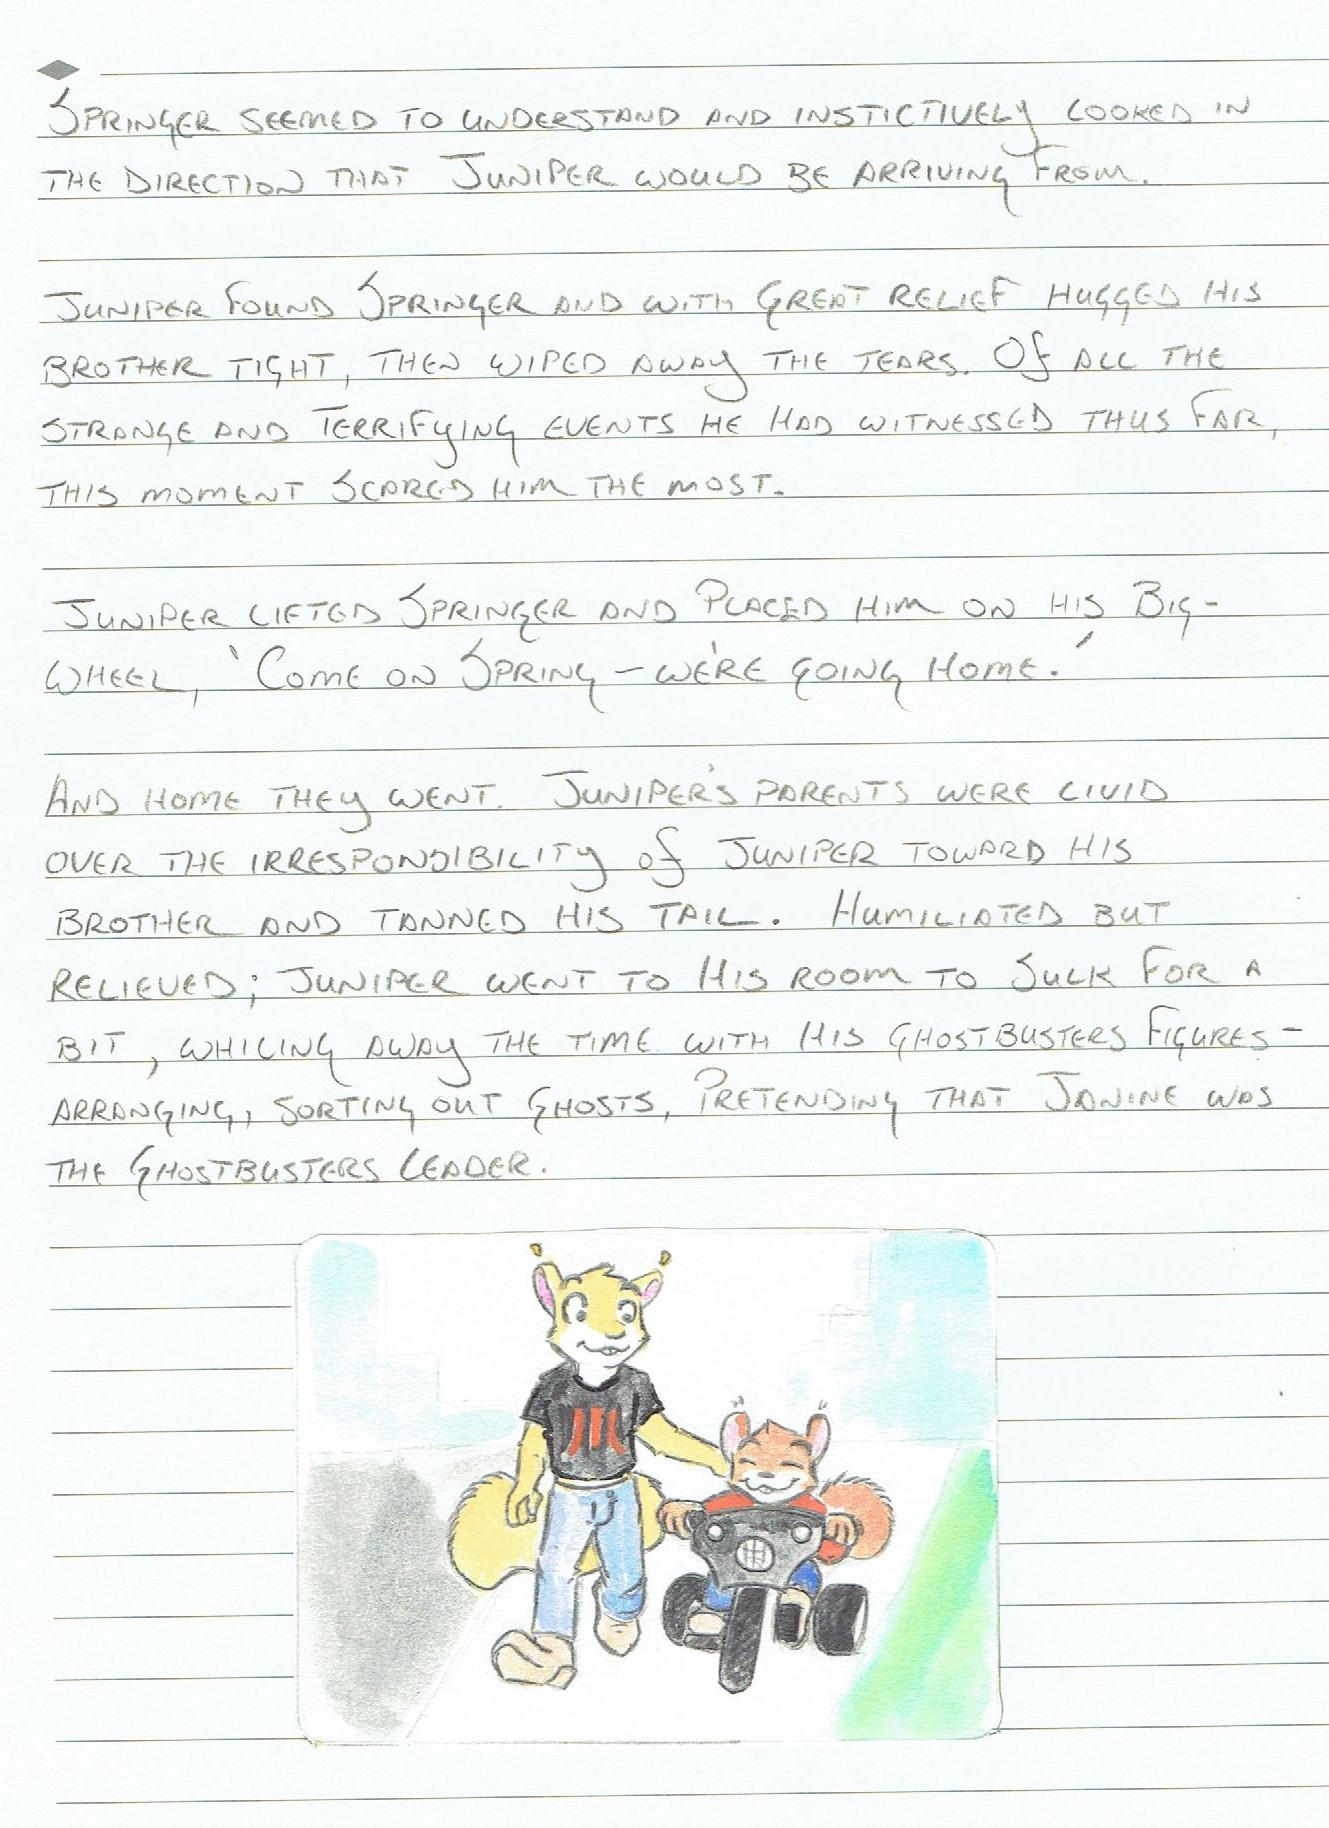 Springer seemed to understand and instictively looked in
the direction that Juniper would be arriving from.
Juniper found Springer and with great relief hugged his
brother tight, then wiped away the tears. Of all the
strange and terrifying events he had witnessed thus far,
this moment scared him the most.
Juniper lifted Springer and placed him on his Big-
Wheel, 'Come on Spring – we're going home.'
And home they went. Juniper's parents were livid
over the irresponsibility of Juniper toward his
brother and tanned his tail. Humiliated but
relieved; Juniper went to his room to sulk for a
bit, whiling away the time with his Ghostbusters figures –
arranging, sorting out ghosts, pretending that Janine was
the Ghostbusters leader.